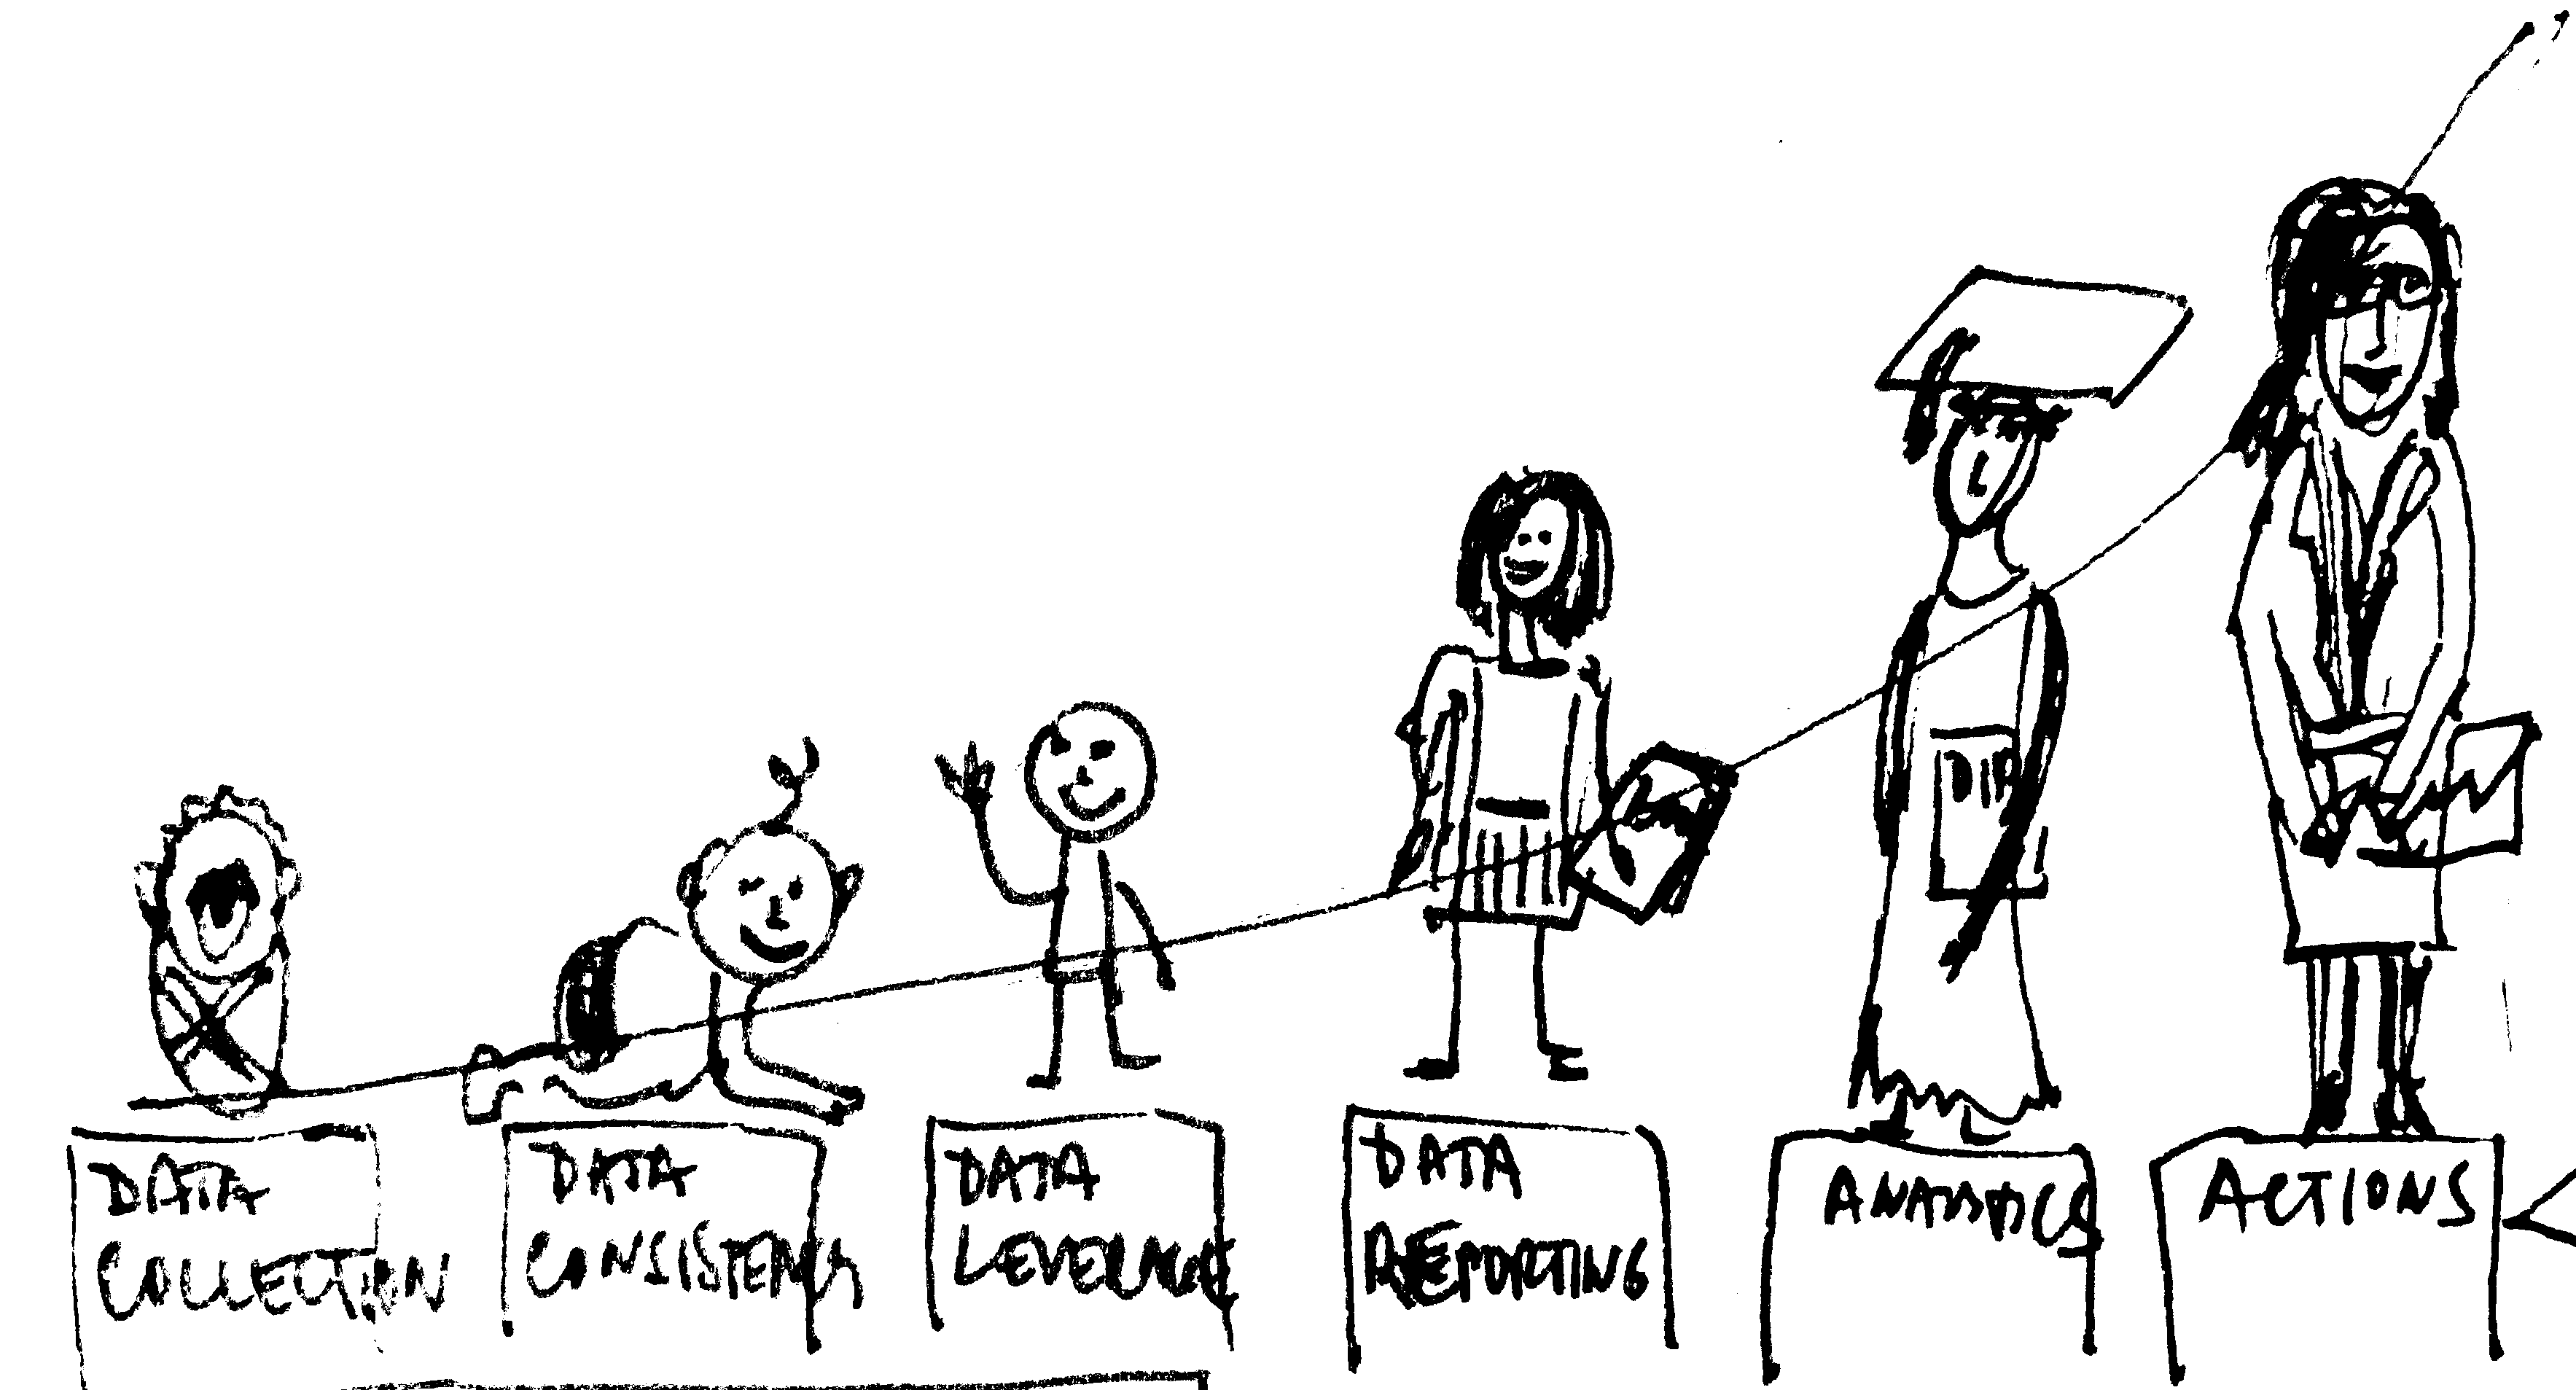 DATA
COLLECTION
DATA
CONSISTENCY
DATA
LEVERAGE
DATA
REPORTING
ANALYTICS
ACTIONS
DIP